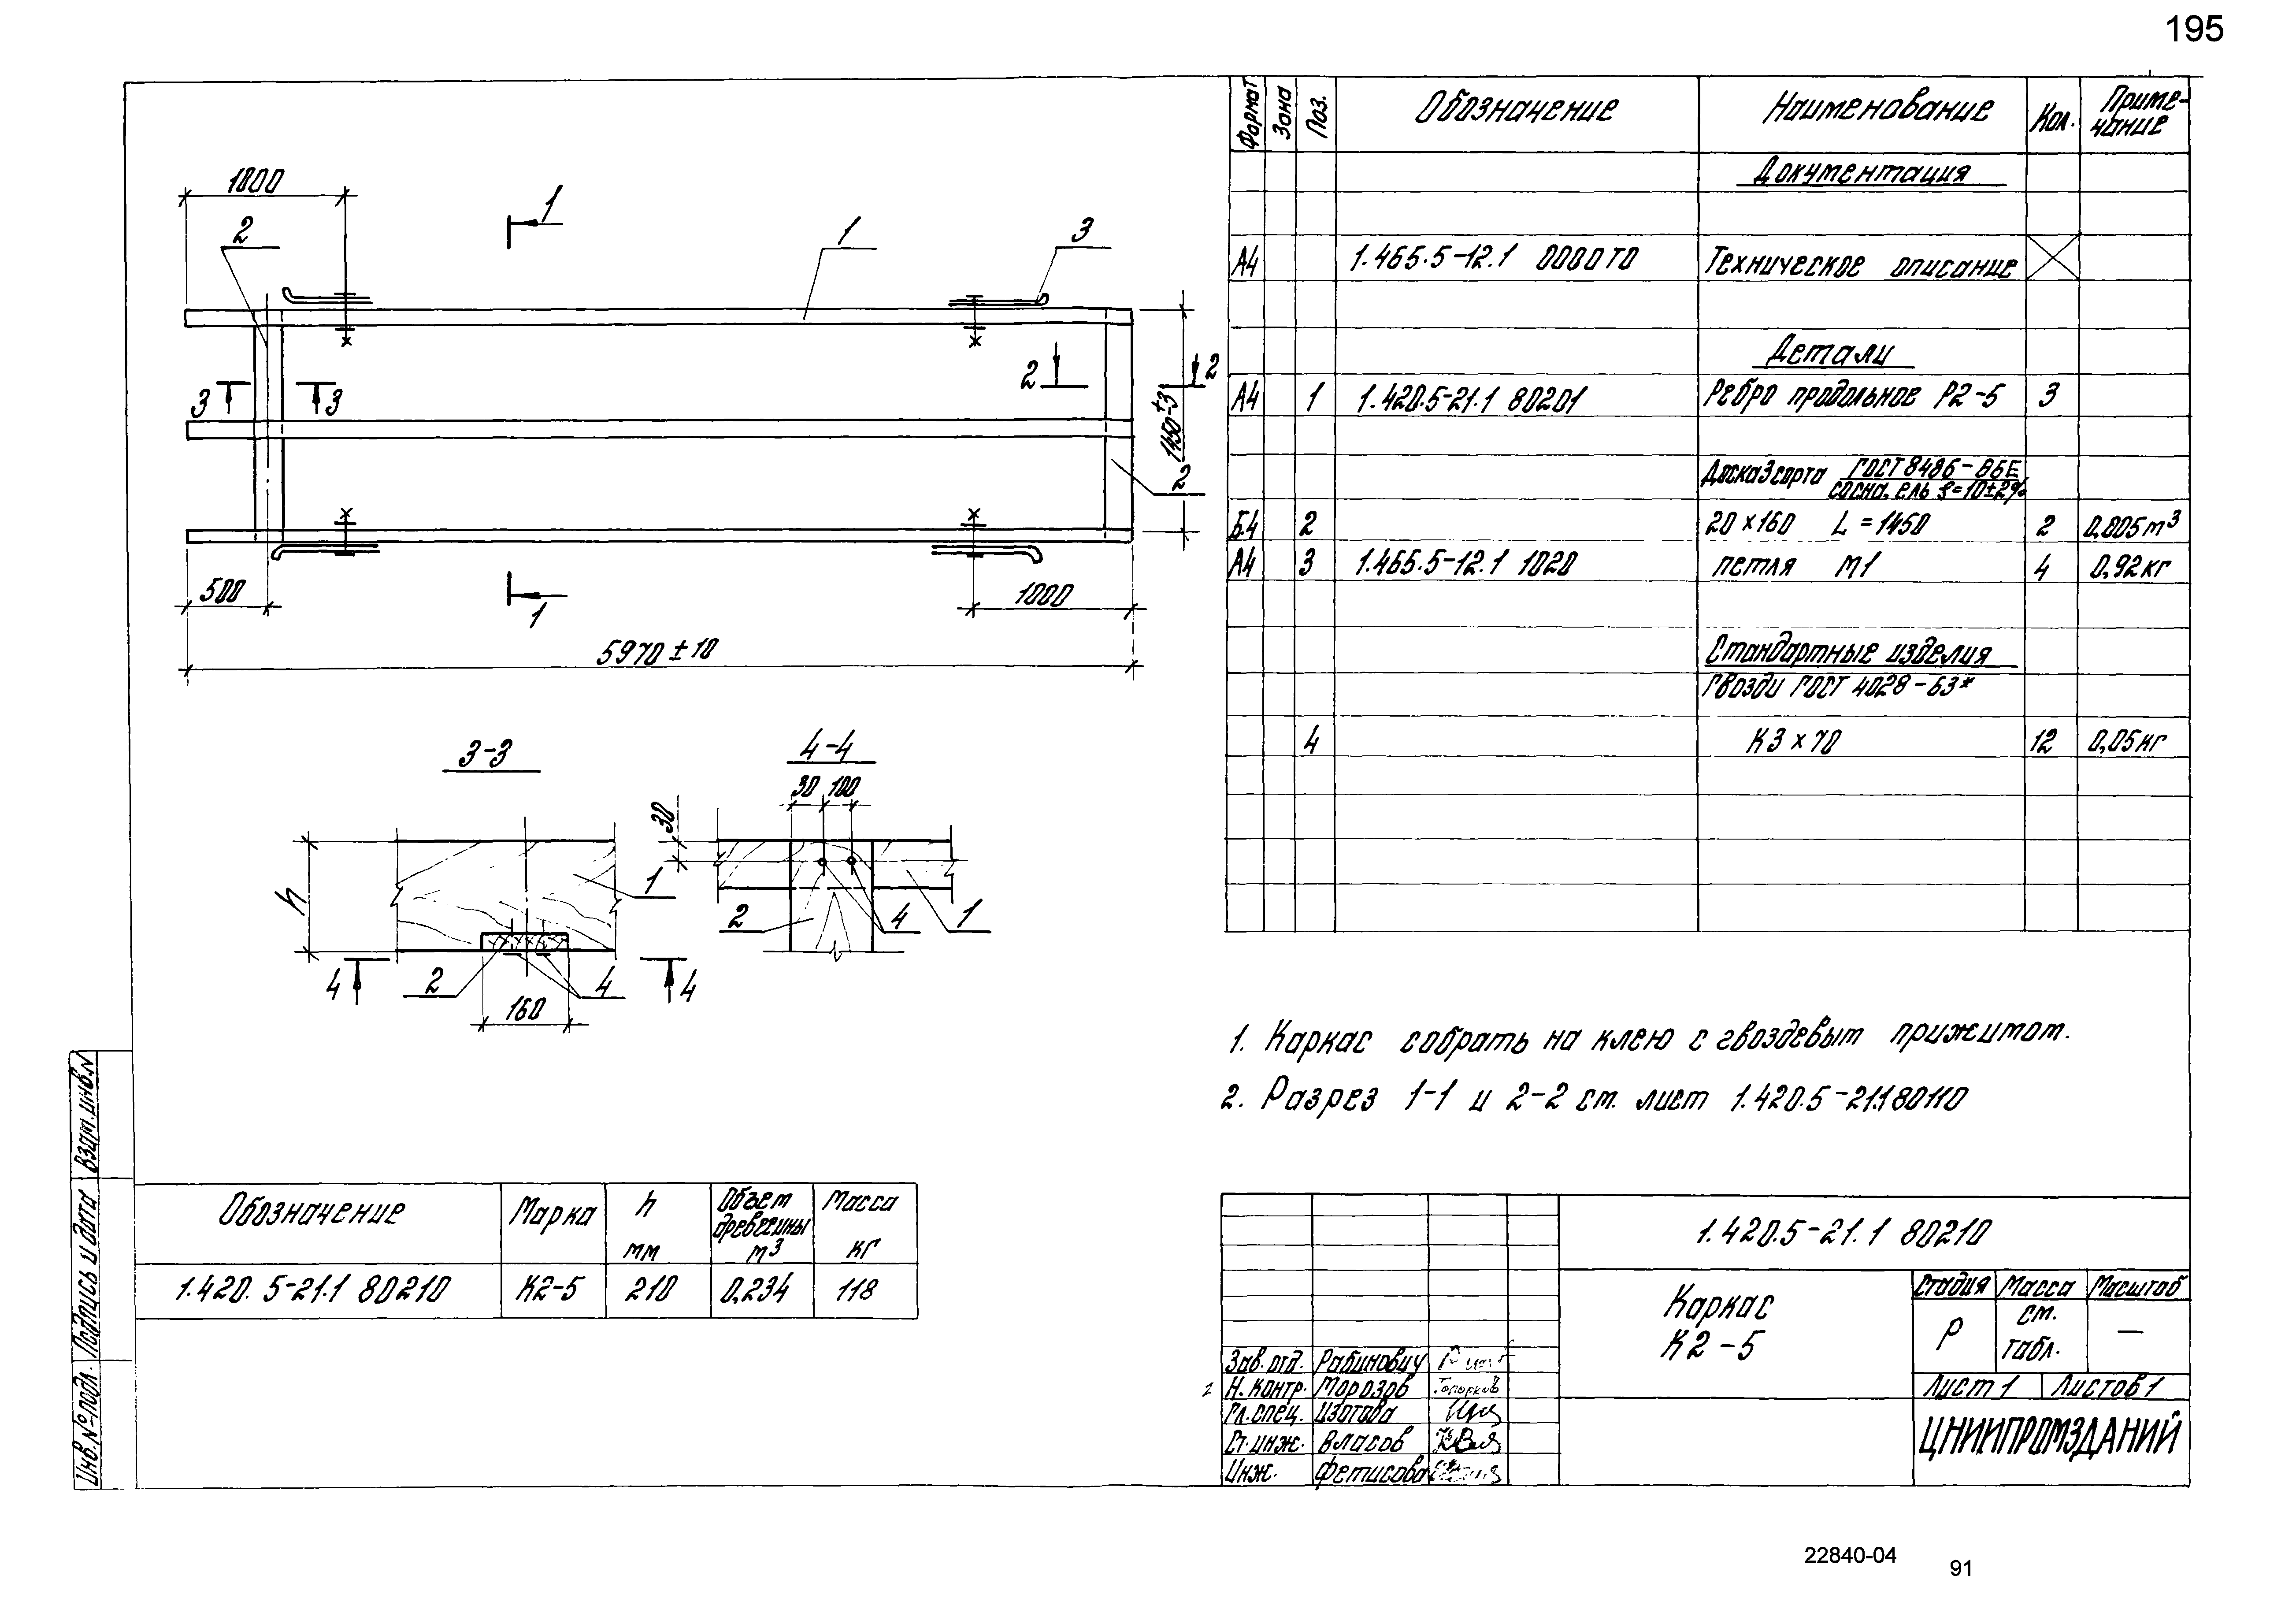 195
Формат Зона Поз. Обозначение Наименование Кол. Приме-
чание
Документация
А4 1.465.5-12.1 0000ТО Техническое описание
Детали
А4 1 1.420.5-21.1 80201 Ребро продольное Р2-5 3
Доска 3 сорта ГОСТ 8486-86Е
сосна, ель
Б4 2 20×160 L=1450 2 0,005м³
А4 3 1.465.5-12.1 1020 петля М1 4 0,92кг
Стандартные изделия
Гвозди ГОСТ 4028-63*
4 К3×70 12 0,05кг
1000
2
1
1
3
3
3
2
2
1450±3
2
500
1
1000
5970±10
3-3
h
1
2
4
4
4
160
4-4
30 100
30
2
4
1
1. Каркас собрать на клею с гвоздевым прижимом.
2. Разрез 1-1 и 2-2 см. лист 1.420.5-21.1 80110
Обозначение Марка h
мм Объем
древесины
м³ Масса
кг
1.420.5-21.1 80210 К2-5 210 0,234 118
1.420.5-21.1 80210
Каркас
К2-5
Стадия Масса Масштаб
Р см.
табл. —
Лист 1 Листов 1
ЦНИИПРОМЗДАНИЙ
Зав. отд. Рабинович
Н. контр. Морозов
Гл. спец. Изотова
Ст. инж. Власов
Инж. Фетисова
Инв. № подл. Подпись и дата Взам. инв. N
22840-04
91